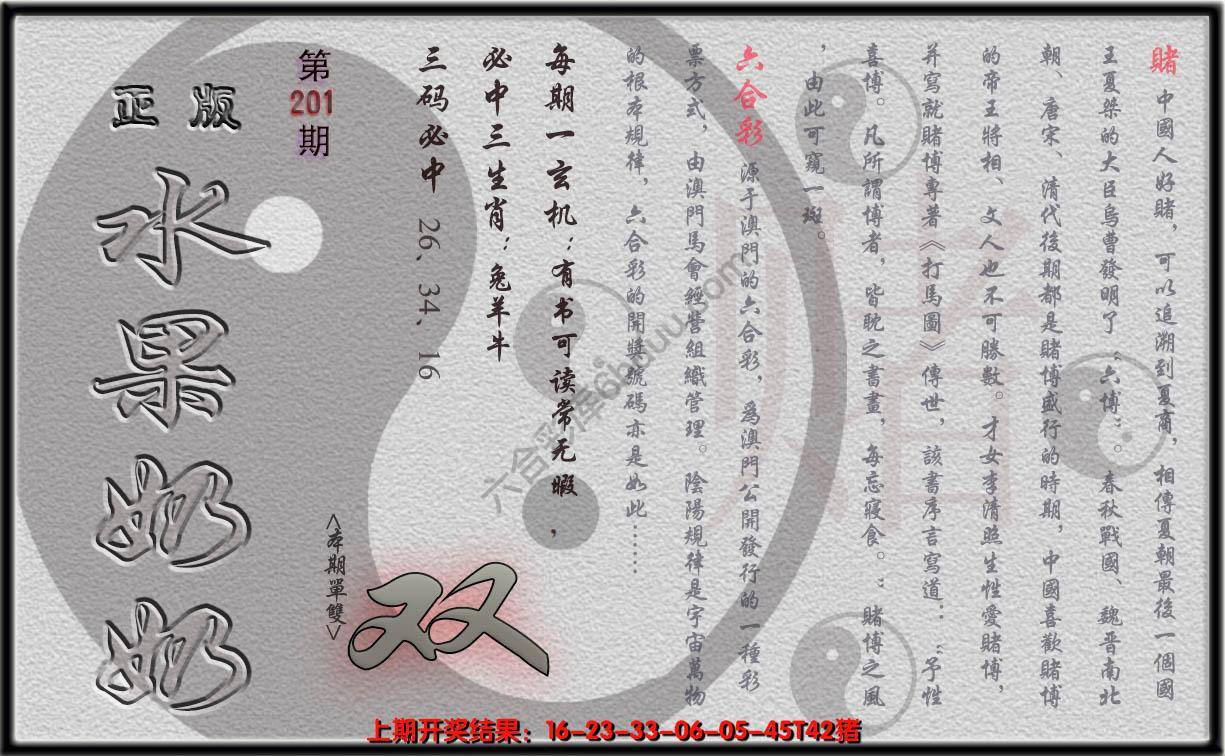 賭 中國人好賭，可以追溯到夏商，相傳夏朝最後一個國
王夏桀的大臣烏曹發明了“六博”。春秋戰國、魏晋南北
朝、唐宋、清代後期都是賭博盛行的時期，中國喜歡賭博
的帝王將相、文人也不可勝數。才女李清照生性愛賭博，
并寫就賭博專著《打馬圖》傳世，該書序言寫道：“予性
喜博。凡所謂博者，皆耽之書畫，每忘寢食。”賭博之風
，由此可窺一斑。
六合彩 源于澳門的六合彩，爲澳門公開發行的一種彩
票方式，由澳門馬會經營組織管理。陰陽規律是宇宙萬物
的根本規律，六合彩的開獎號碼亦是如此……
每期一玄机：有书可读常无暇，
必中三生肖：兔羊牛
三码必中 26、34、16
<本期單雙>
双
第
201
期
正版
水果奶奶
賭
六合彩库6huuu.com
上期开奖结果：16-23-33-06-05-45T42猪